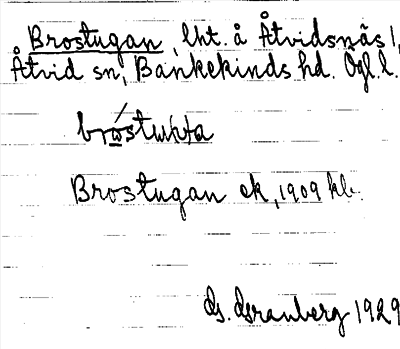 Brostugan, lht. å Åtvidsnäs 1,
Åtvid sn, Bankekinds hd. Ögl. l.
Brostugan ek, 1909 kb.
G. Granberg 1929